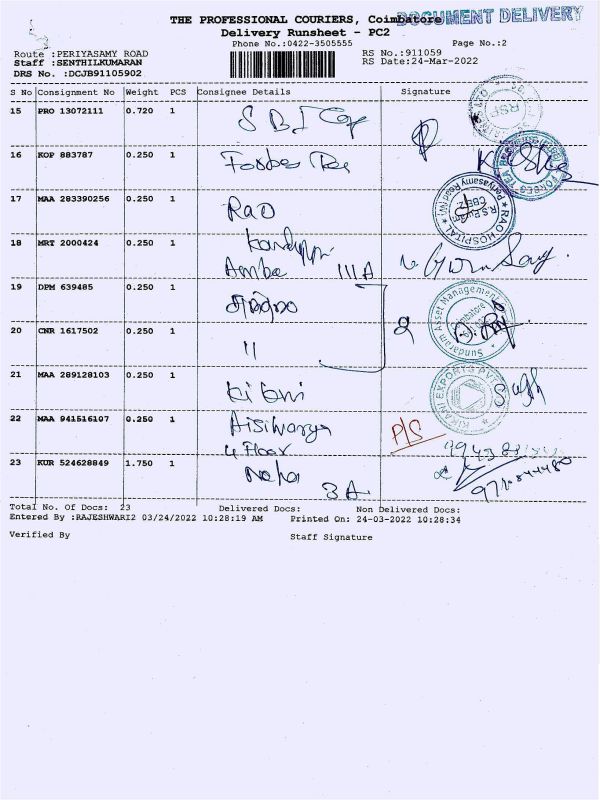 THE PROFESSIONAL COURIERS, Coimbatore
DOCUMENT DELIVERY
Delivery Runsheet - PC2
Phone No.:0422-3505555
Page No.:2
Route :PERIYASAMY ROAD
Staff :SENTHILKUMARAN
DRS No. :DCJB91105902
RS No.:911059
RS Date:24-Mar-2022
S No Consignment No Weight PCS Consignee Details Signature
15 PRO 13072111 0.720 1 SBI Cap
16 KOP 883787 0.250 1 Forbes Tea
17 MAA 283390256 0.250 1 Rao
RAO HOSPITAL
18 MRT 2000424 0.250 1
Amba III A
19 DPM 639485 0.250 1
Sundaram Asset Management
Coimbatore
20 CNR 1617502 0.250 1 11
21 MAA 289128103 0.250 1 Kikani
KIKANI EXPORTS PVT
22 MAA 941516107 0.250 1 Aishwarya P/S
4 Floor
23 KUR 524628849 1.750 1 Neha
3A
Total No. Of Docs: 23 Delivered Docs: Non Delivered Docs:
Entered By :RAJESHWARI2 03/24/2022 10:28:19 AM Printed On: 24-03-2022 10:28:34
Verified By Staff Signature